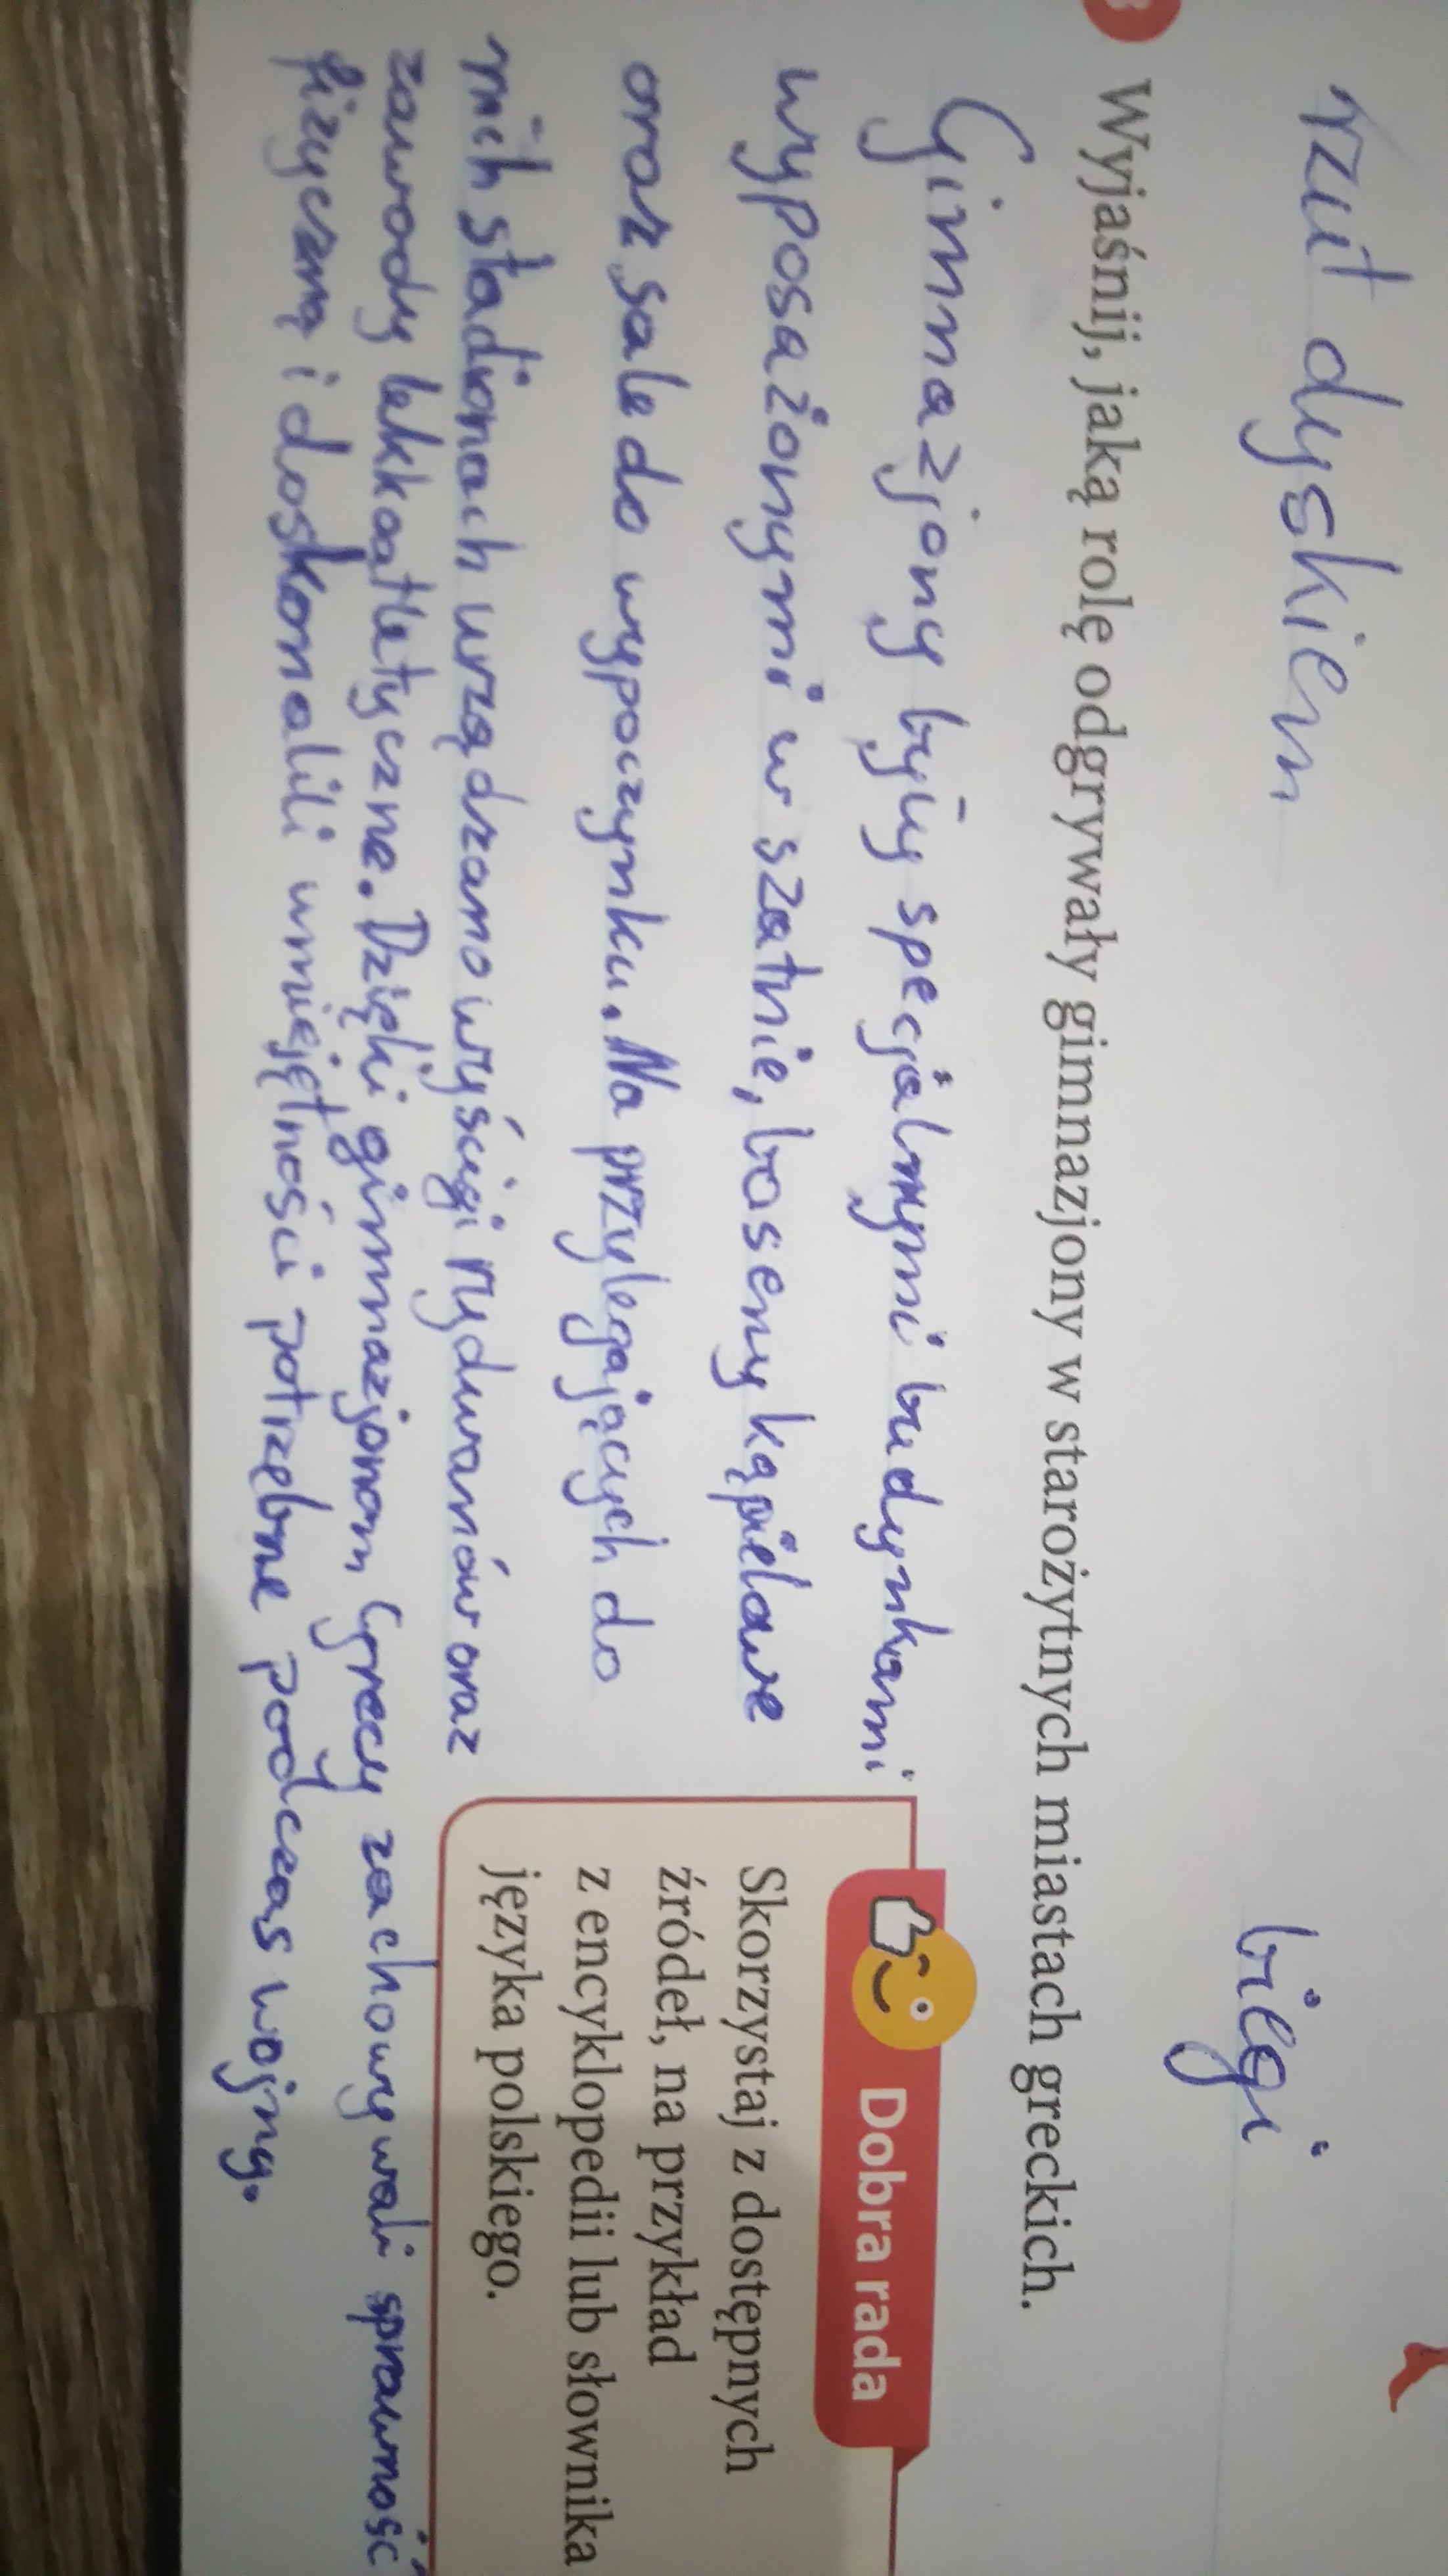 rzut dyskiem
biegi
Wyjaśnij, jaką rolę odgrywały gimnazjony w starożytnych miastach greckich.
Gimnazjony były specjalnymi budynkami
wyposażonymi w szatnie, baseny kąpielowe
oraz sale do wypoczynku. Na przylegających do
nich stadionach urządzano wyścigi rydwanów oraz
zawody lekkoatletyczne. Dzięki gimnazjonom Grecy zachowywali sprawność
fizyczną i doskonalili umiejętności potrzebne podczas wojny.
Dobra rada
Skorzystaj z dostępnych
źródeł, na przykład
z encyklopedii lub słownika
języka polskiego.